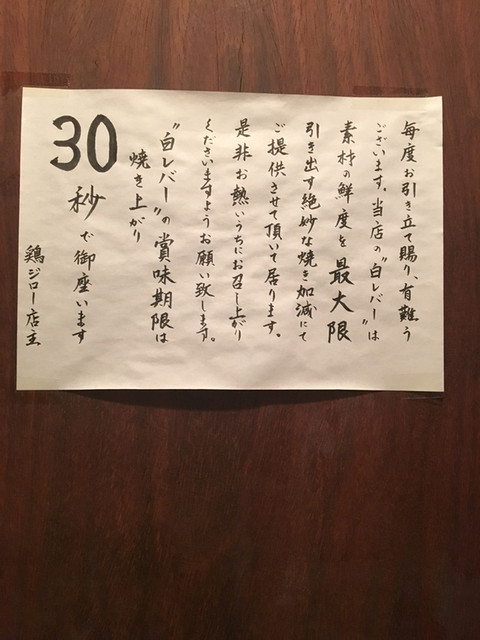 毎度お引き立て賜り、有難う
ございます。当店の〝白レバー〟は
素材の鮮度を最大限
引き出す絶妙な焼き加減にて
ご提供させて頂いて居ります。
是非お熱いうちにお召し上がり
くださいますようお願い致します。
〝白レバー〟の賞味期限は
焼き上がり
30秒で御座います
鶏ジロー店主